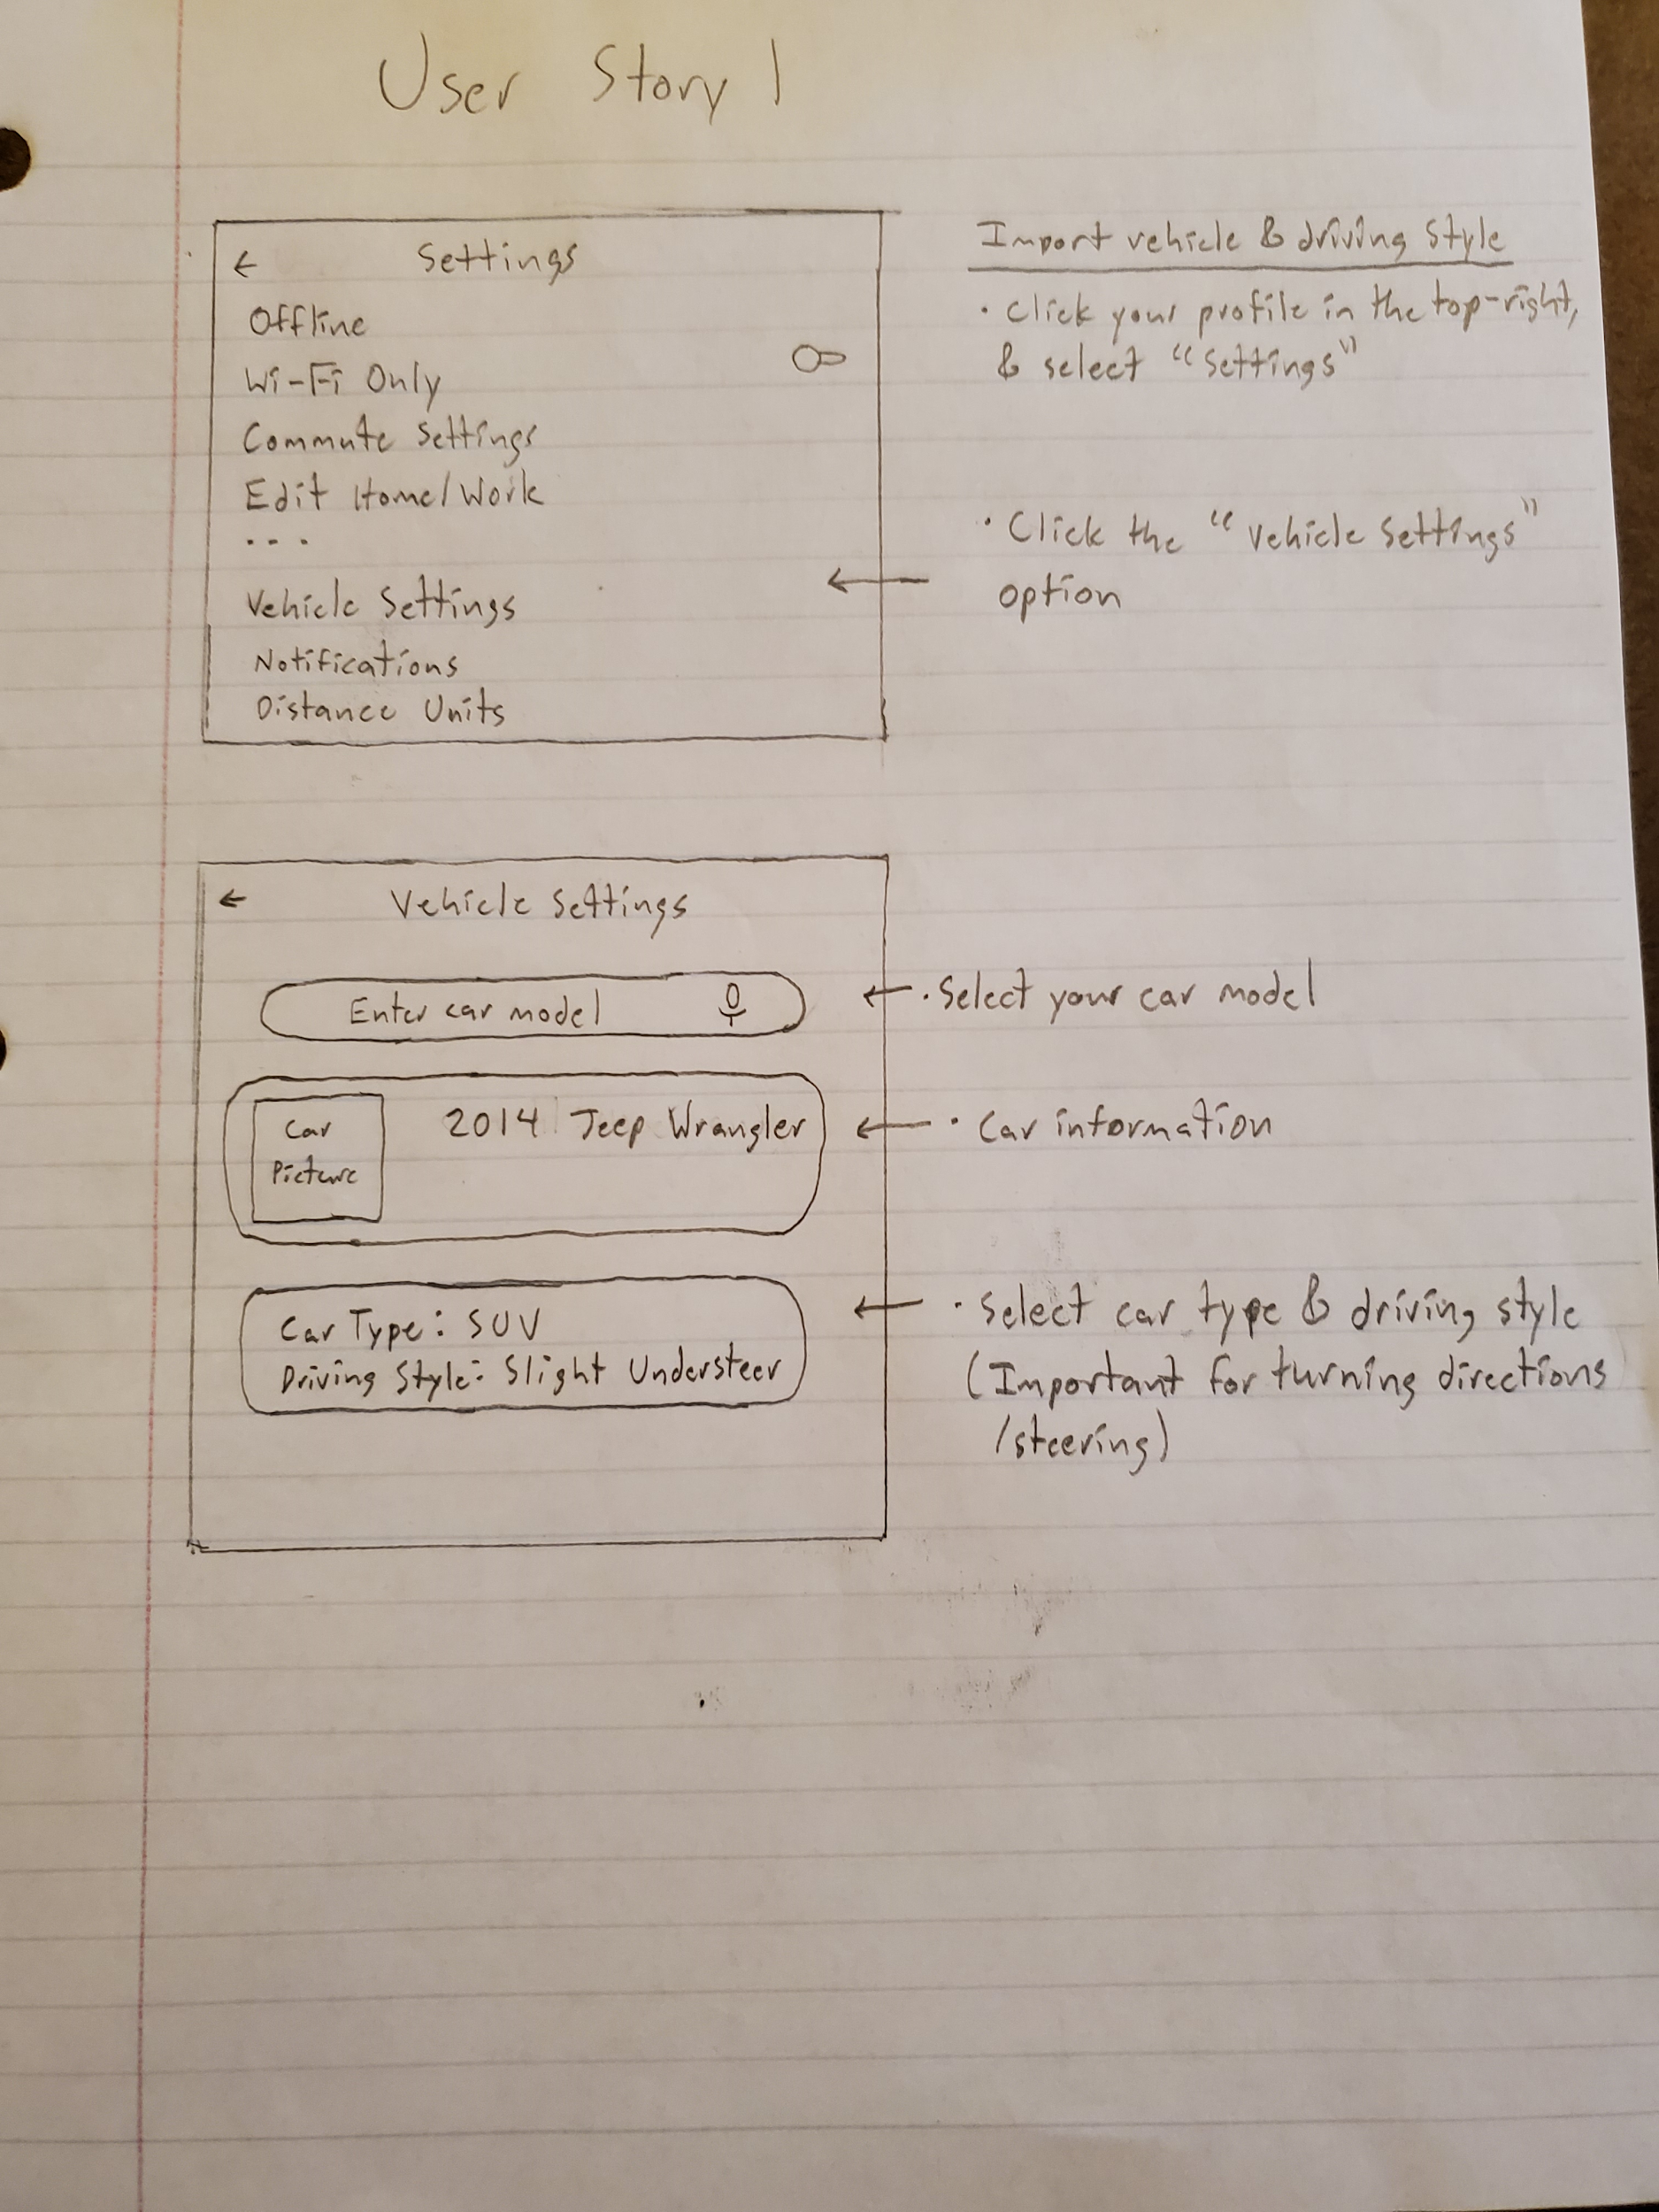 User Story 1
← Settings
Offline
Wi-Fi Only
Commute Settings
Edit Home/Work
...
Vehicle Settings
Notifications
Distance Units
Import vehicle & driving style
· Click your profile in the top-right,
& select "Settings"
· Click the "Vehicle Settings"
option
← Vehicle Settings
Enter car model
← · Select your car model
Car
Picture
2014 Jeep Wrangler
← · Car information
Car Type: SUV
Driving Style: Slight Understeer
← · Select car type & driving style
(Important for turning directions
/steering)